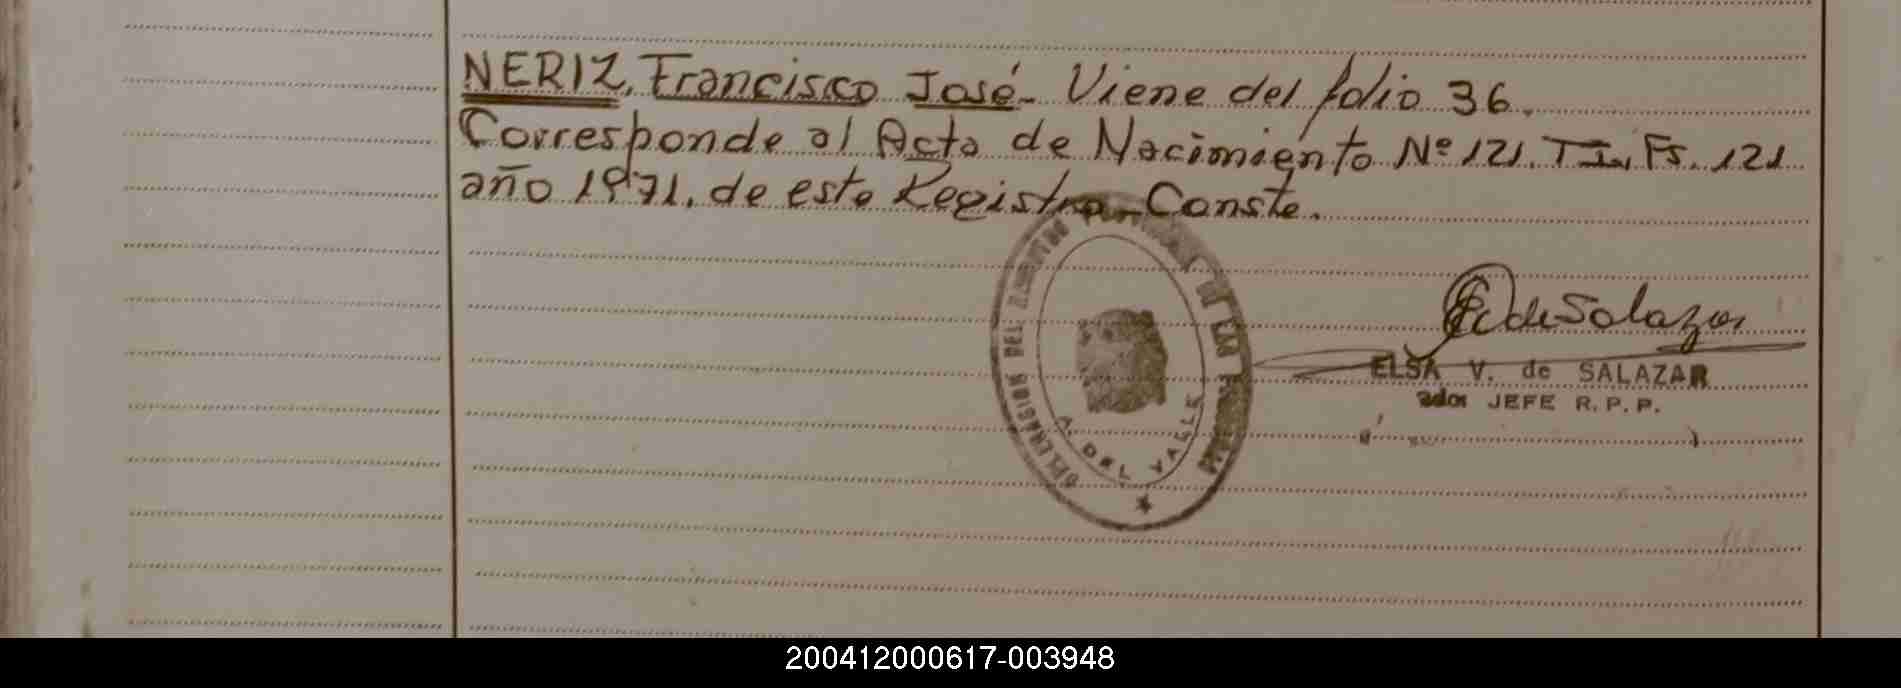 NERIZ, Francisco José- Viene del folio 36.
Corresponde al Acta de Nacimiento Nº 121. T I., Fs. 121
año 1971, de este Registro- Conste.
DEL REGISTRO DE LAS
DEL VALLE
de Salazar
ELSA V. de SALAZAR
JEFE R. P. P.
200412000617-003948